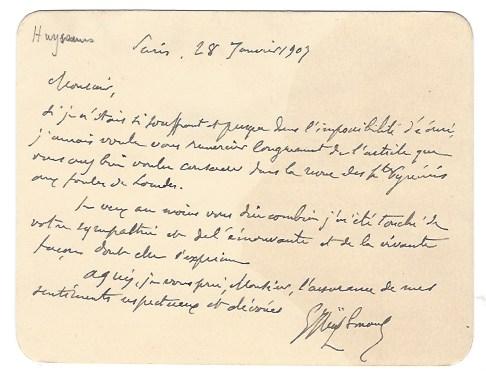 Huysmans
Paris, 28 Janvier 1907
Monsieur,
Si je n'étais si souffrant et presque dans l'impossibilité d'écrire,
j'aurais voulu vous remercier longuement de l'article que
vous avez bien voulu consacrer dans la revue des Htes Pyrénées
aux foules de Lourdes.
Je veux au moins vous dire combien j'ai été touché de
votre sympathie et de l'émouvante et de la vivante
façon dont elle s'exprime
Agréez, je vous prie, Monsieur, l'assurance de mes
sentiments respectueux et dévoués
G Huysmans